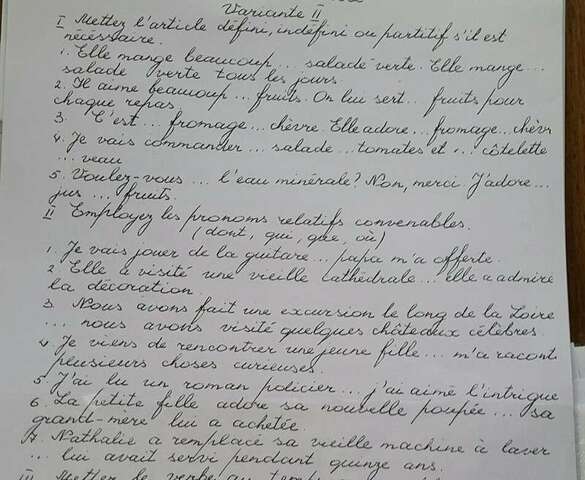 Variante II
I Mettez l'article défini, indéfini ou partitif s'il est
nécessaire.
1. Elle mange beaucoup... salade verte. Elle mange...
salade verte tous les jours.
2. Il aime beaucoup ... fruits. On lui sert... fruits pour
chaque repas.
3. C'est ... fromage ... chèvre. Elle adore ... fromage... chèvr
4. Je vais commander ... salade ... tomates et ... côtelette
... veau
5. Voulez-vous ... l'eau minérale? Non, merci J'adore...
jus ... fruits.
II Employez les pronoms relatifs convenables.
(dont, qui, que, où)
1. Je vais jouer de la guitare... papa m'a offerte.
2. Elle a visité une vieille cathédrale... elle a admiré
la décoration.
3. Nous avons fait une excursion le long de la Loire
... nous avons visité quelques châteaux célèbres.
4. Je viens de rencontrer une jeune fille... m'a racont
plusieurs choses curieuses.
5. J'ai lu un roman policier... j'ai aimé l'intrigue
6. La petite fille adore sa nouvelle poupée... sa
grand-mère lui a achetée.
7. Nathalie a remplacé sa vieille machine à laver
... lui avait servi pendant quinze ans.
III Mettez le verbe au